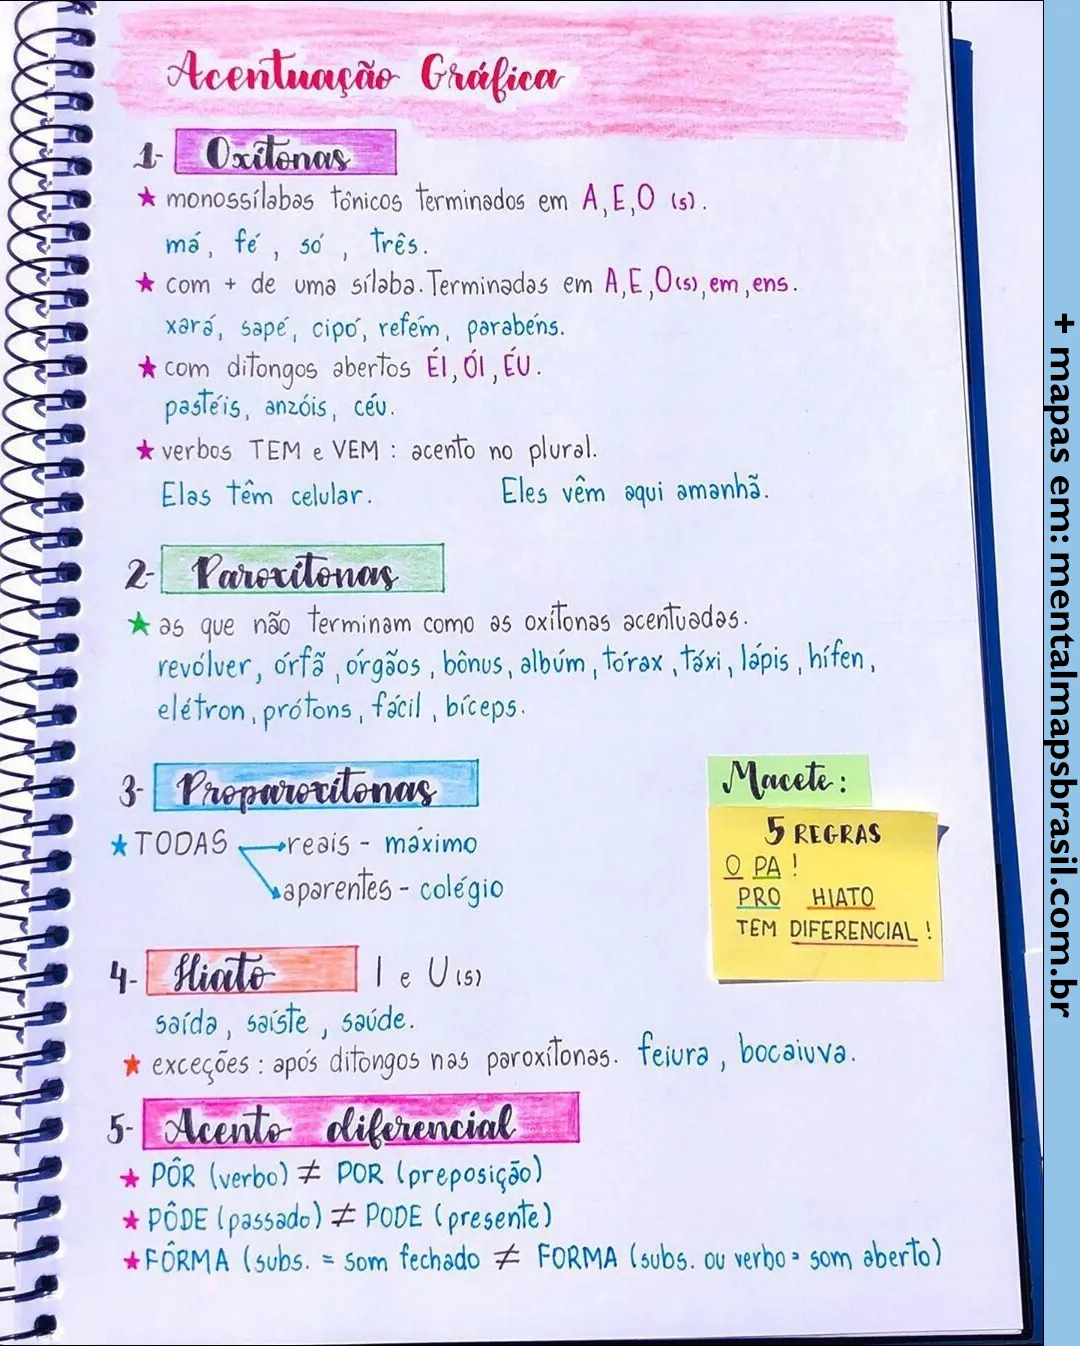 Acentuação Gráfica
1- Oxítonas
★ monossílabas tônicos terminados em A, E, O (s).
má, fé, só, três.
★ com + de uma sílaba. Terminadas em A, E, O(s), em, ens.
xará, sapé, cipó, refém, parabéns.
★ com ditongos abertos ÉI, ÓI, ÉU.
pastéis, anzóis, céu.
★ verbos TEM e VEM : acento no plural.
Elas têm celular. Eles vêm aqui amanhã.
2- Paroxítonas
★ as que não terminam como as oxítonas acentuadas.
revólver, órfã, órgãos, bônus, albúm, tórax, táxi, lápis, hífen,
elétron, prótons, fácil, bíceps.
3- Proparoxítonas
★ TODAS reais - máximo
aparentes - colégio
Macete :
5 REGRAS
O PA !
PRO HIATO
TEM DIFERENCIAL !
4- Hiato I e U (s)
saída, saíste, saúde.
★ exceções : após ditongos nas paroxítonas. feiura, bocaiuva.
5- Acento diferencial
★ PÔR (verbo) ≠ POR (preposição)
★ PÔDE (passado) ≠ PODE (presente)
★ FÔRMA (subs. = som fechado ≠ FORMA (subs. ou verbo = som aberto)
+ mapas em: mentalmapsbrasil.com.br